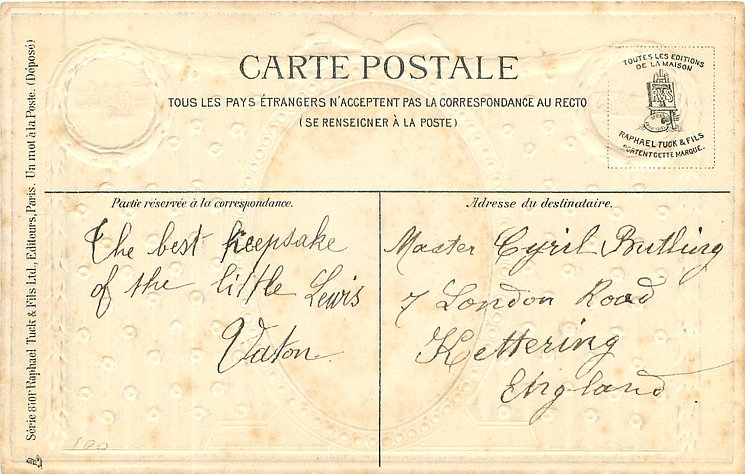 CARTE POSTALE
TOUS LES PAYS ÉTRANGERS N'ACCEPTENT PAS LA CORRESPONDANCE AU RECTO
(SE RENSEIGNER À LA POSTE)
TOUTES LES EDITIONS
DE LA MAISON
R&S
RAPHAEL TUCK & FILS
PORTENT CETTE MARQUE.
Partie réservée à la correspondance.
The best keepsake
of the little Lewis
Vaton
Adresse du destinataire.
Master Cyril Butling
7 London Road
Kettering
England
Série 810 Raphael Tuck & Fils Ltd., Editeurs, Paris. Un mot à la Poste. (Déposé)
100